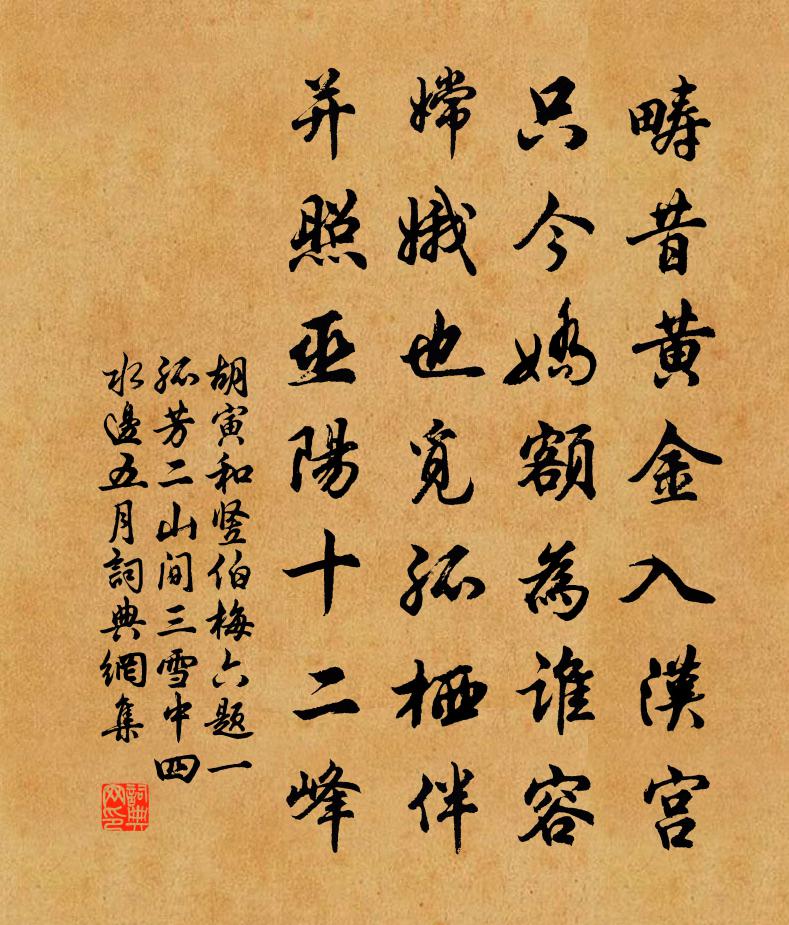 疇昔黄金入漢宫
只今嬌額為誰容
嫦娥也覓孤栖伴
并照巫陽十二峰
胡寅和竖伯梅六题一
孤芳二山间三雪中四
水邊五月詞典網集
詞典網印